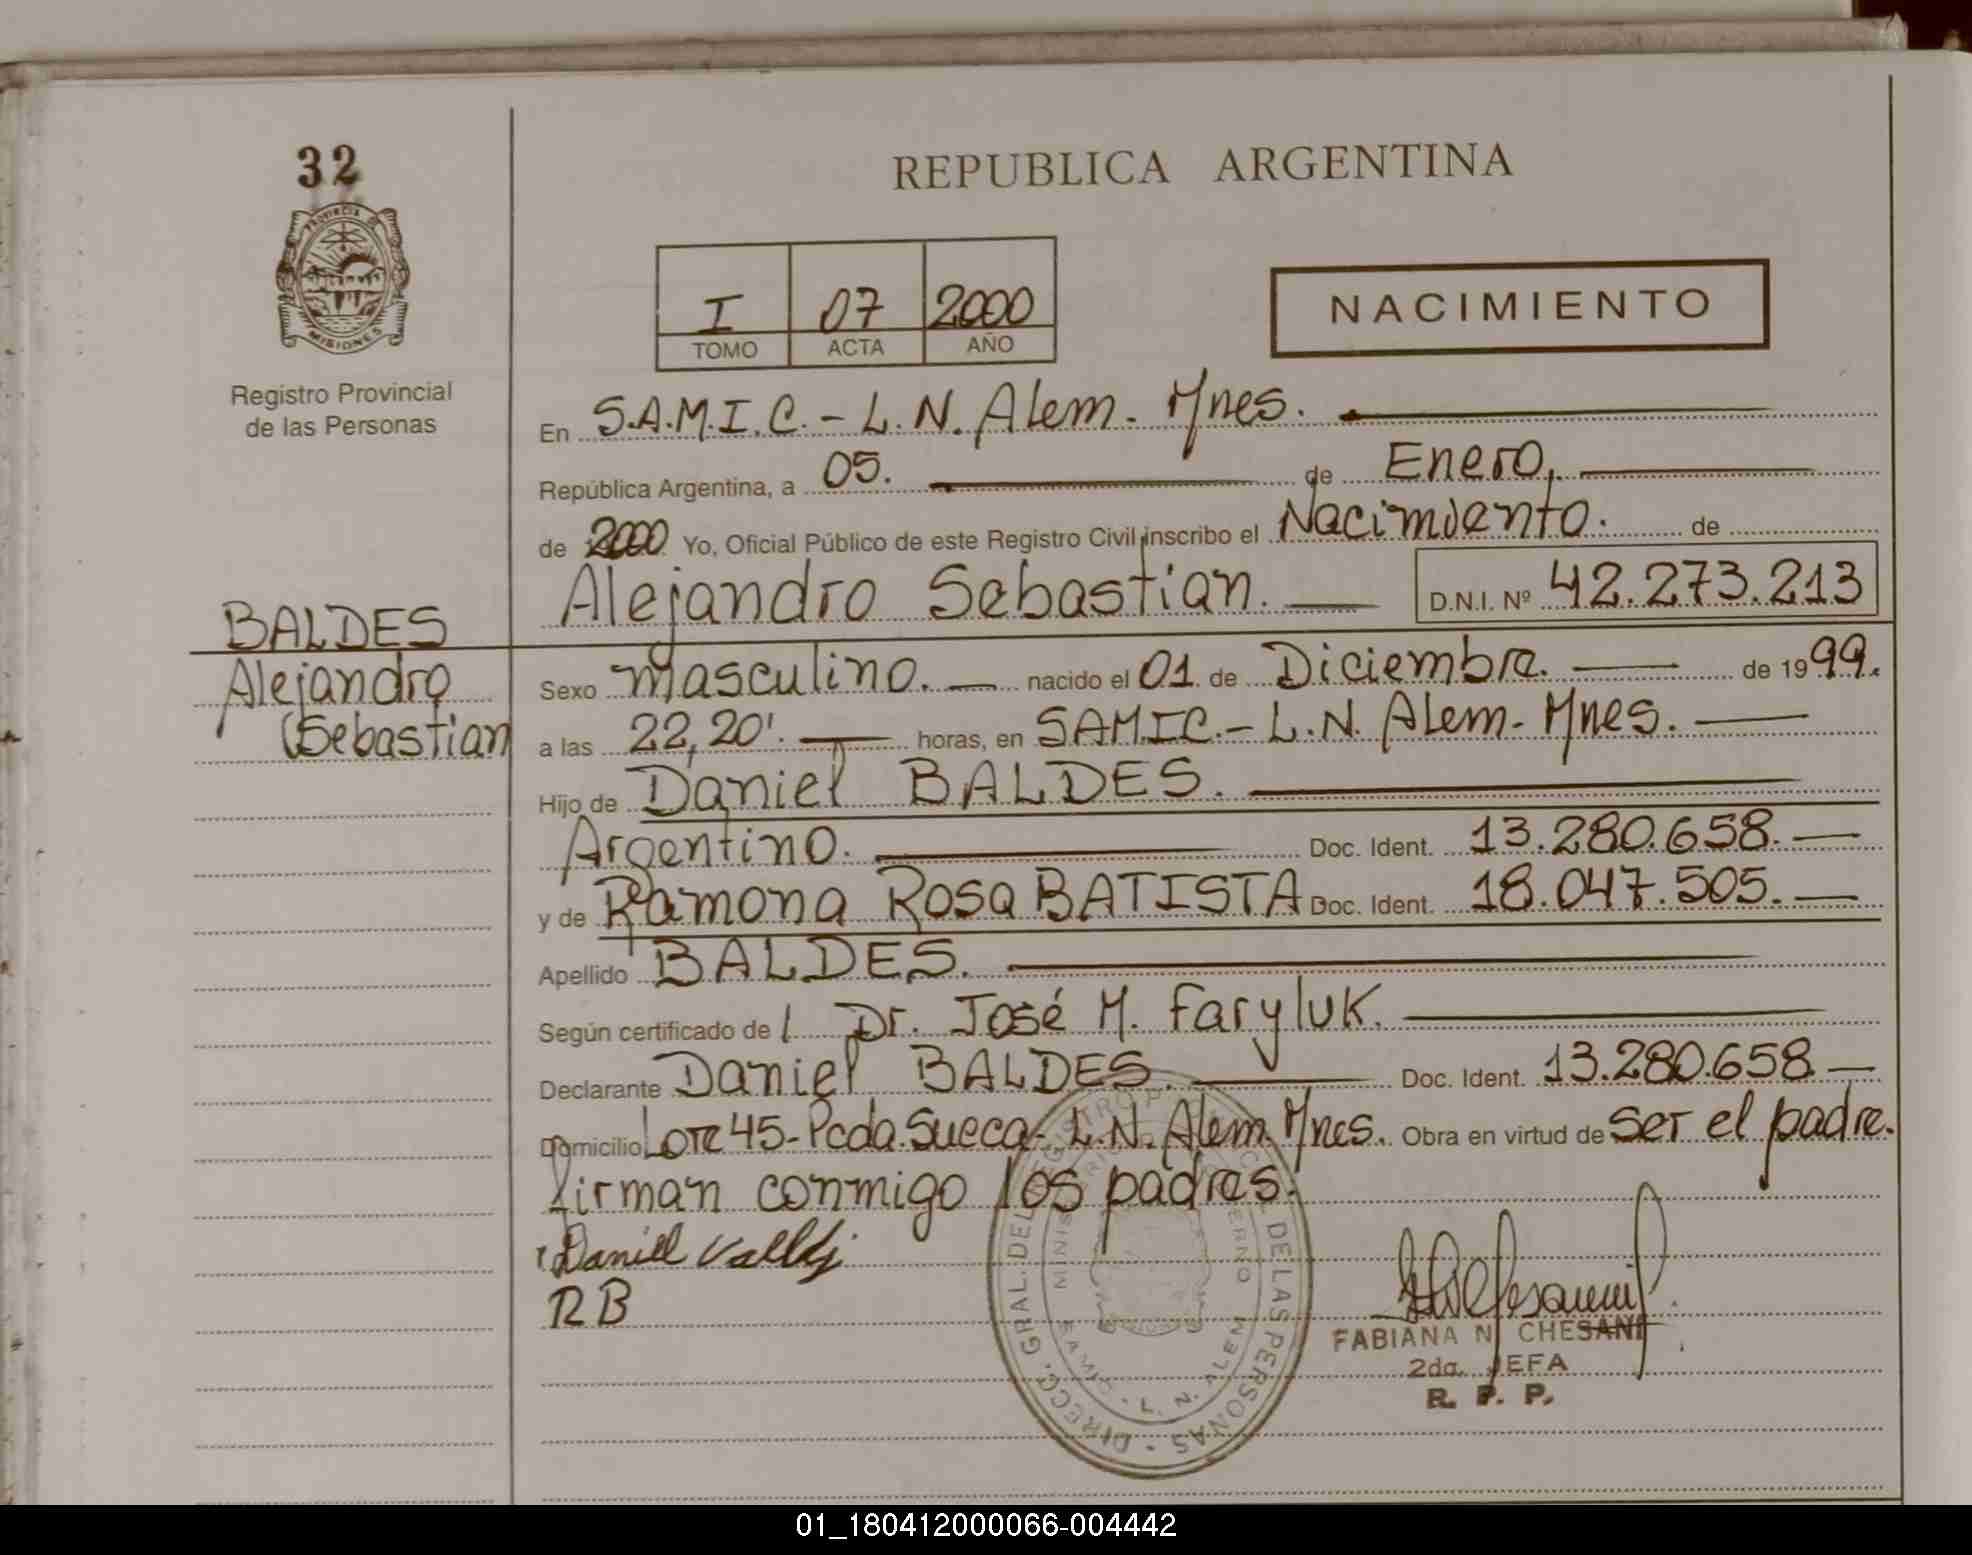 32
PROVINCIA DE
MISIONES
Registro Provincial
de las Personas
REPUBLICA ARGENTINA
I 07 2000
TOMO ACTA AÑO
NACIMIENTO
En S.A.M.I.C.- L. N. Alem. Mnes.
República Argentina, a 05. de Enero,
de 2000 Yo, Oficial Público de este Registro Civil inscribo el Nacimiento. de
Alejandro Sebastian. D.N.I. Nº 42.273.213
BALDES
Alejandro
Sebastian
Sexo masculino. nacido el 01 de Diciembre. de 1999.
a las 22,20'. horas, en SAMIC.- L. N. Alem- Mnes.
Hijo de Daniel BALDES.
Argentino. Doc. Ident. 13.280.658.
y de Ramona Rosa BATISTA Doc. Ident. 18.047.505.
Apellido BALDES.
Según certificado de / Dr. José M. Faryluk.
Declarante Daniel BALDES. Doc. Ident. 13.280.658
Domicilio Lote 45- Pcda. Sueca- L.N. Alem. Mnes. Obra en virtud de ser el padre.
firman conmigo los padres.
Daniel
RB
DIRECC. GRAL. DEL REGISTRO DE LAS PERSONAS
SAMIC - L. N. ALEM
FABIANA N. CHESANI
2da. JEFA
R. P. P.
01_180412000066-004442